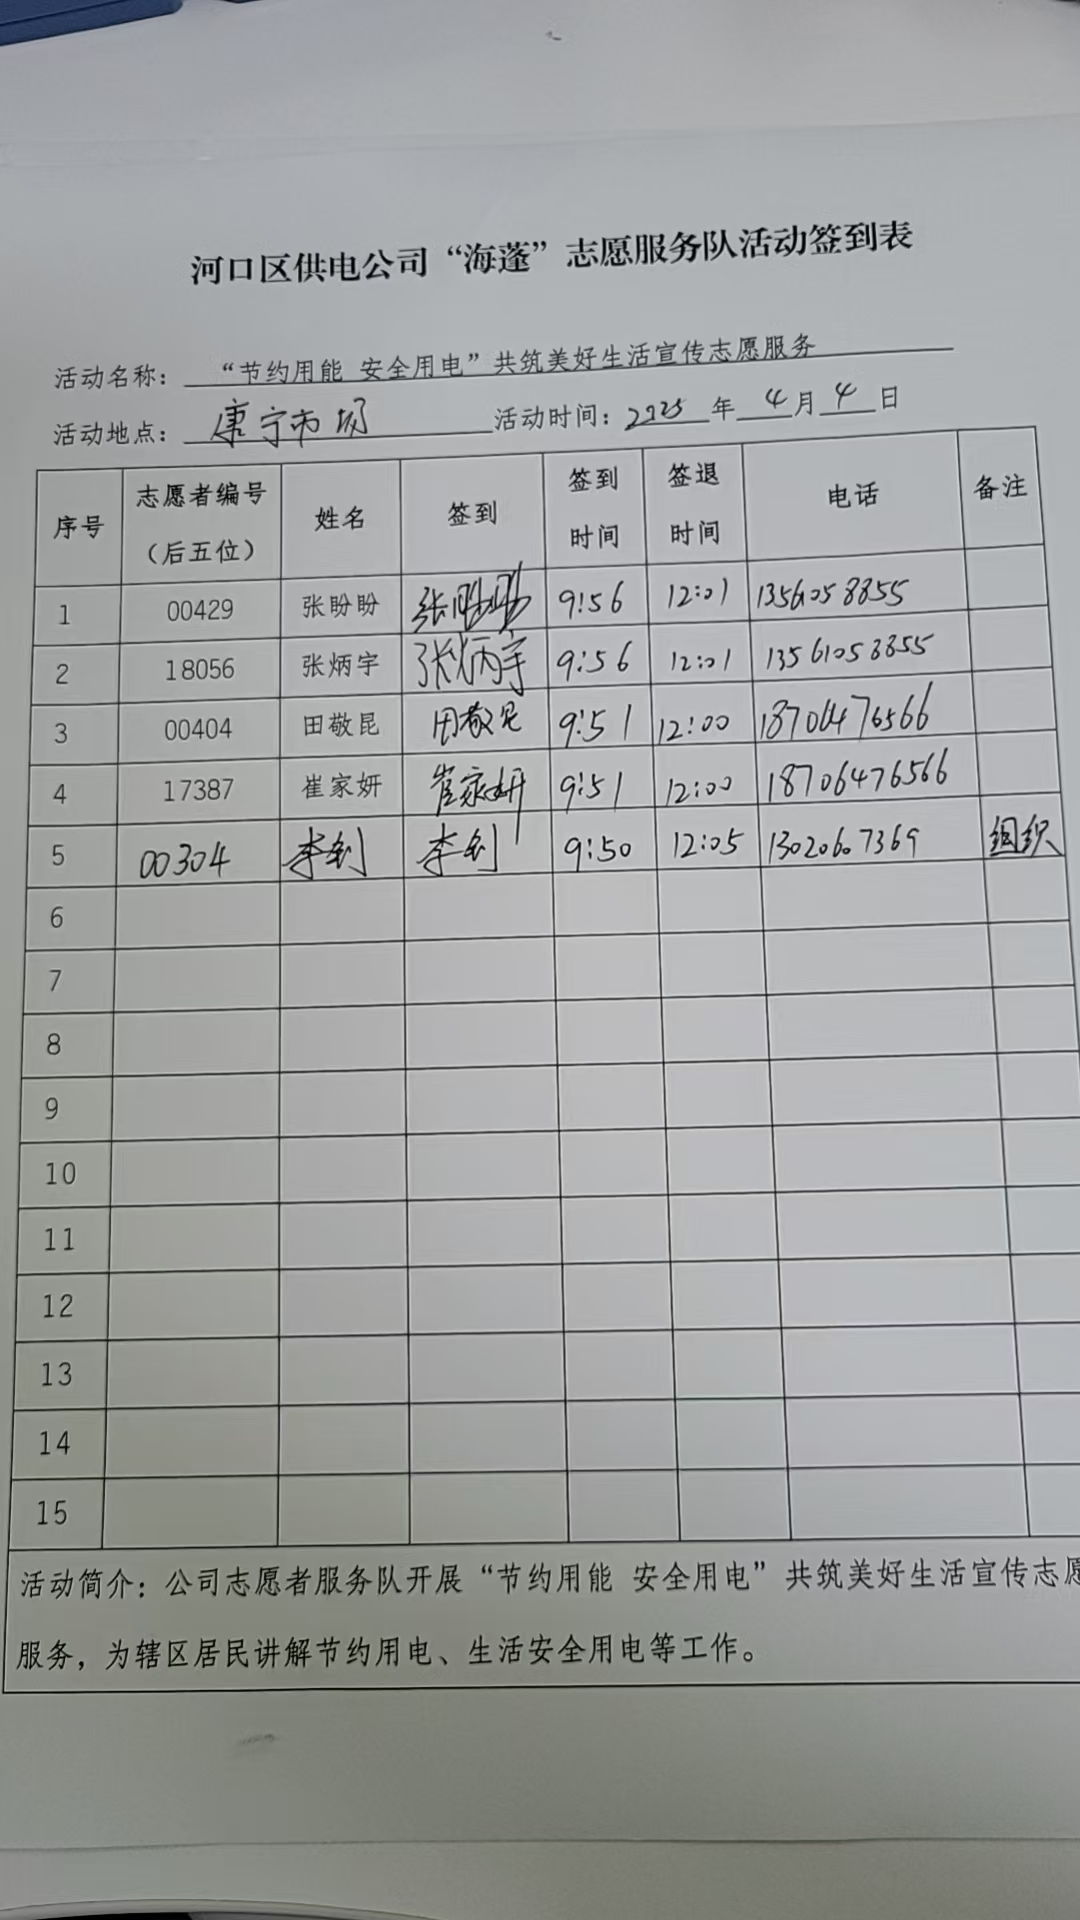 河口区供电公司“海蓬”志愿服务队活动签到表
活动名称：“节约用能 安全用电”共筑美好生活宣传志愿服务
活动地点：康宁市场 活动时间：2025年4月4日
序号 志愿者编号（后五位） 姓名 签到 签到时间 签退时间 电话 备注
1 00429 张盼盼 张盼盼 9:56 12:01 13561058855
2 18056 张炳宇 张炳宇 9:56 12:01 13561058855
3 00404 田敬昆 田敬昆 9:51 12:00 18706476566
4 17387 崔家妍 崔家妍 9:51 12:00 18706476566
5 00304 李钊 李钊 9:50 12:05 13020607369 组织
6
7
8
9
10
11
12
13
14
15
活动简介：公司志愿者服务队开展“节约用能 安全用电”共筑美好生活宣传志愿
服务，为辖区居民讲解节约用电、生活安全用电等工作。